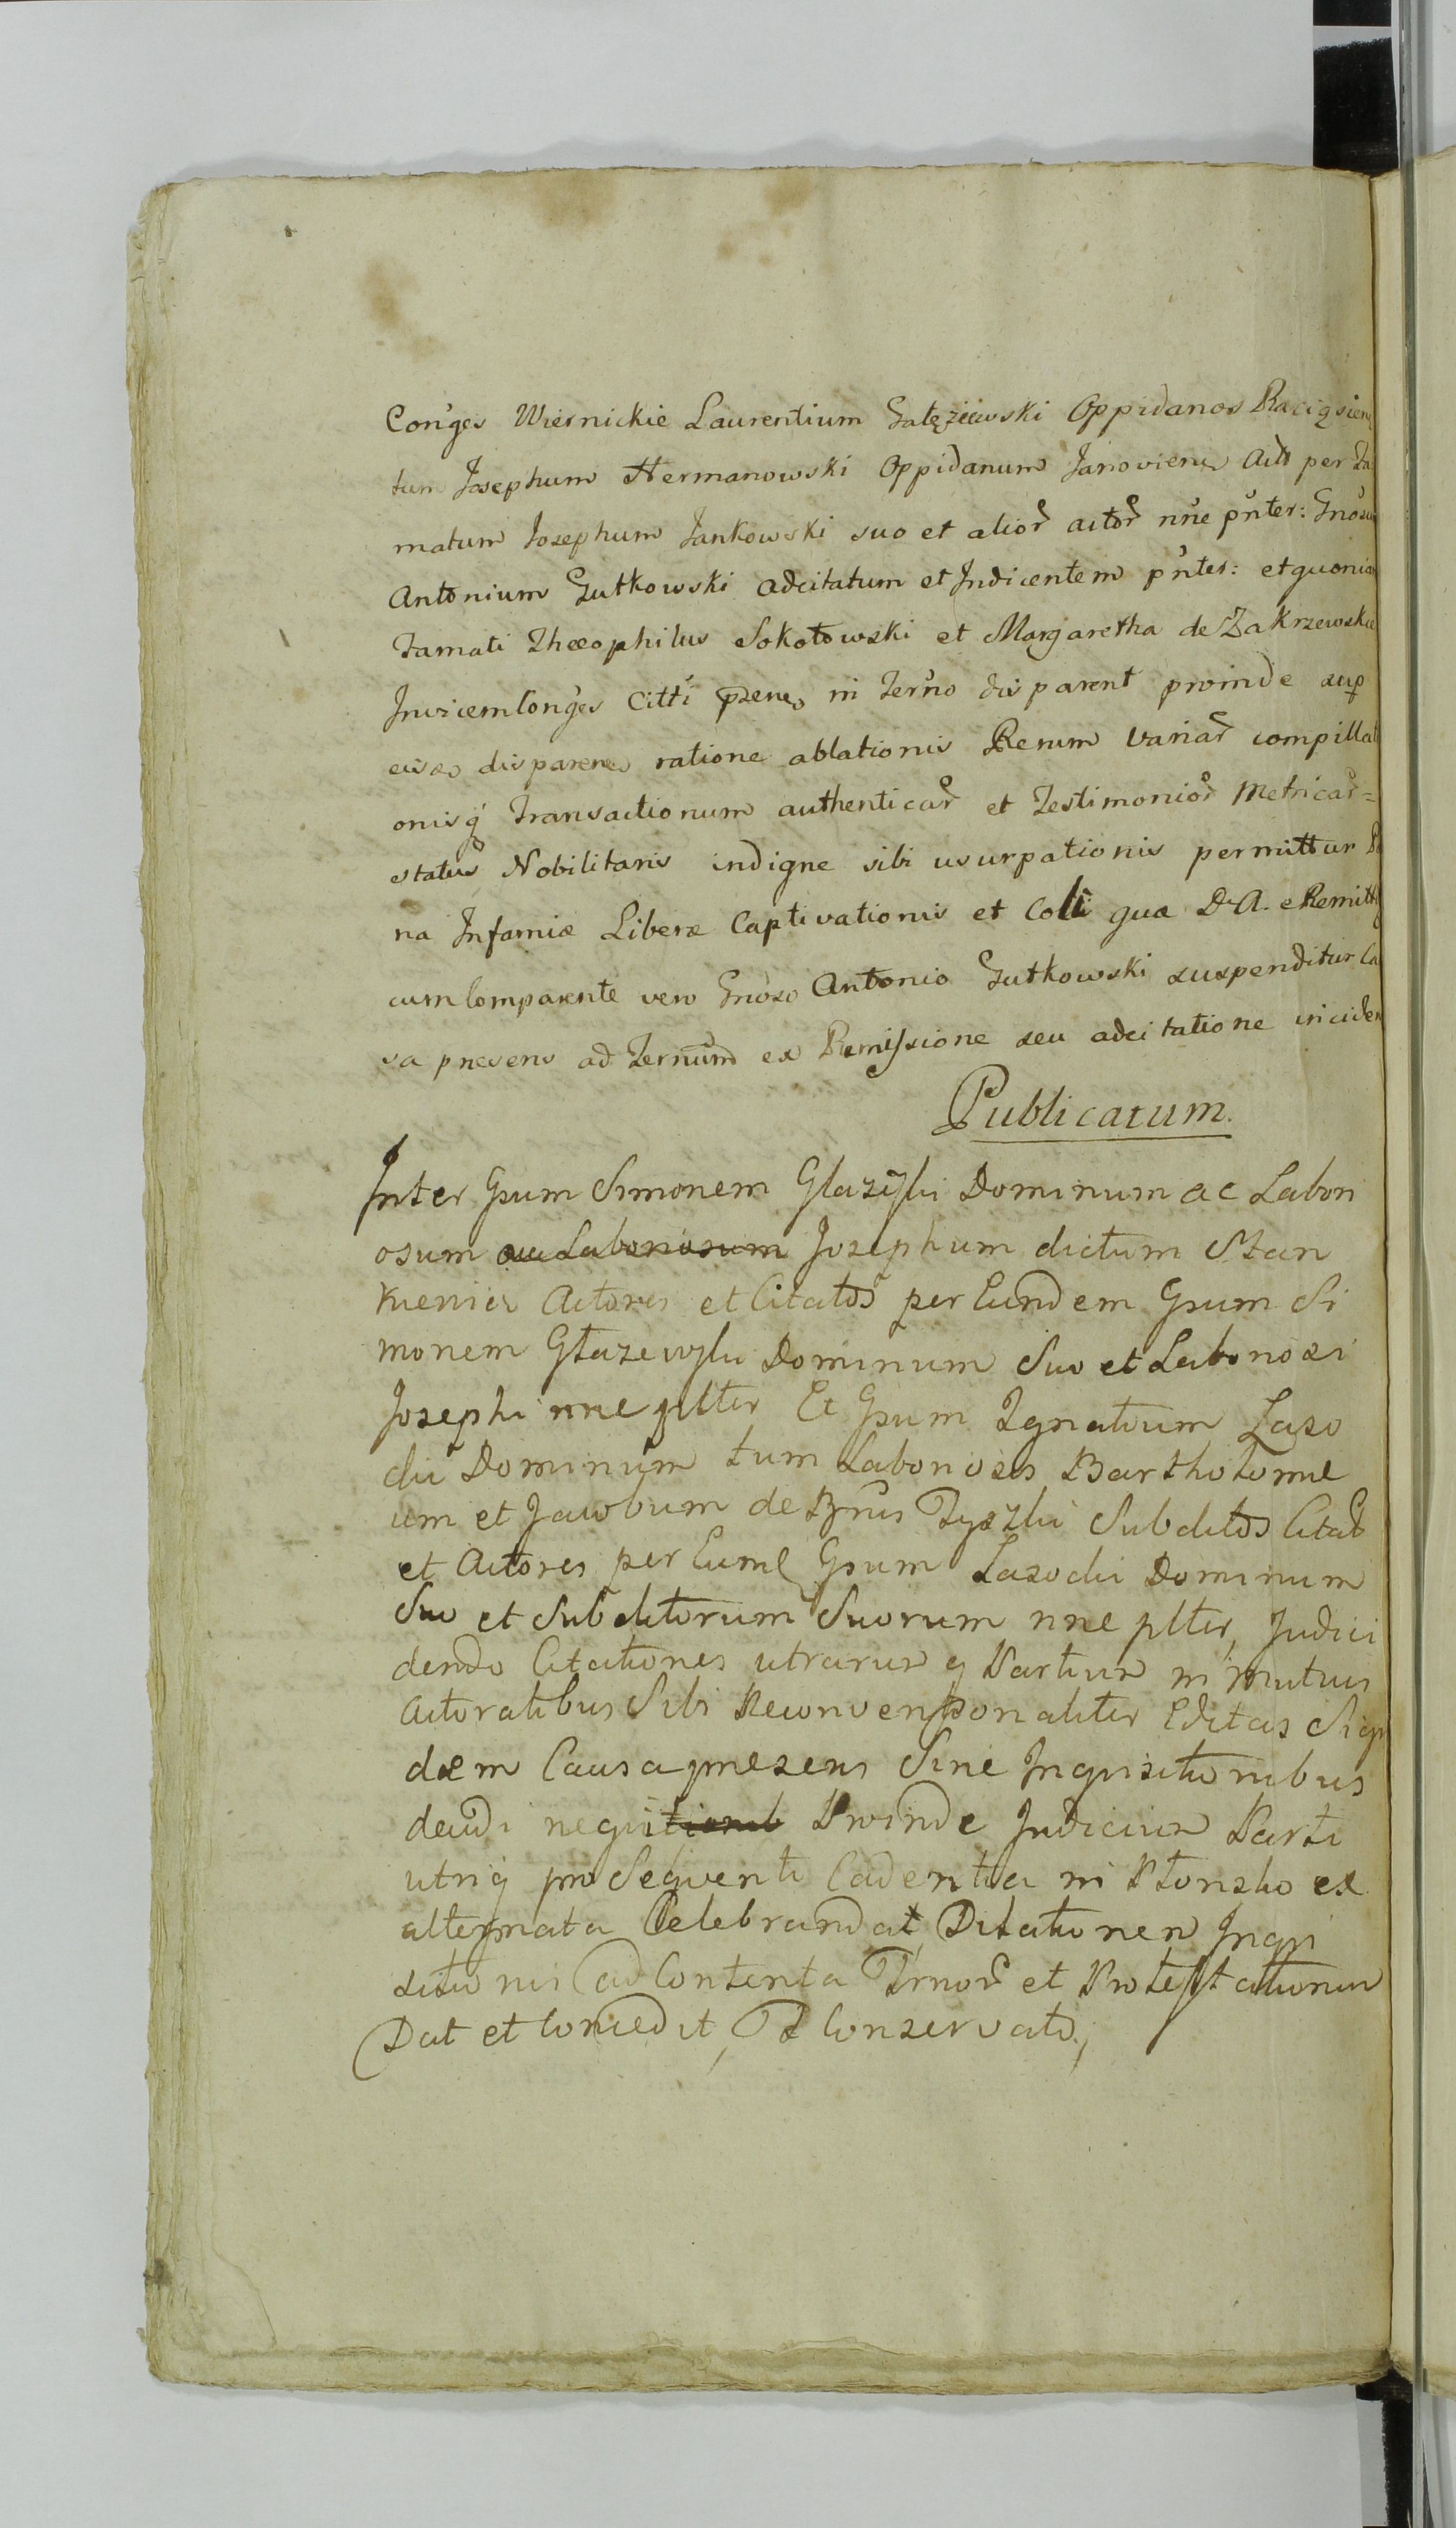 Conges Wiernickie Laurentium Gałęziewski Oppidanos Raciązien
tum Josephum Hermanowski Oppidanum Janoviens Act per Fa
matum Josephum Jankowski suo et alior actor nne pnter: Gnosum
Antonium Gutkowski adcitatum et Indicentem pnter: et quoniam
Famati Theophilus Sokołowski et Margaretha de Zakrzewskie
Invicem Conges Citti in Terno dis parent proinde sup
eisds disparenes ratione ablationis Rerum Variar compillati
onisq Transactionum authenticar et Testimonior Metricar=
status Nobilitaris indigne sibi usurpationis permittur
na Infamiæ Liberæ Captivationis et Colli qua D A. e Remitt
cum Comparente vero Gnoso Antonio Gutkowski suspenditur Ca
sa presens ad Ternum ex Remissione seu adcitatione inciden
Publicatum.
Inter Gsum Simonem Dominum ac Labori
osum ac Laboriosum Josephum dictum Stan
Actores et Citatos per Eundem Gsum Si
monem Dominum Suo et Laboriosi
Josephi nne pltter Et Gsum Ignatium Laso
cki Dominum tum Laboriosos Bartholome
um et Jacobum de Bnis Tyszki Subditos Citat
et Actores per Eumd Gsum Lasocki Dominum
Suo et Subditorum Suorum nne pltter, Judici
dendo Citationes utrarum q Partium in mutuis
Actoratibus Sibi Reconventionaliter Editas Siqui
dem Causa presens Sine Inquisitionibus
deudi nequit Proinde Judicium Parti
utriq pro Sequenti Cadentia in Płonsko ex
alternata Celebrandat Dilationem Inqui
sitionis ad Contenta Trnor et Protestationum
Dat et Concedit, T Conservato,